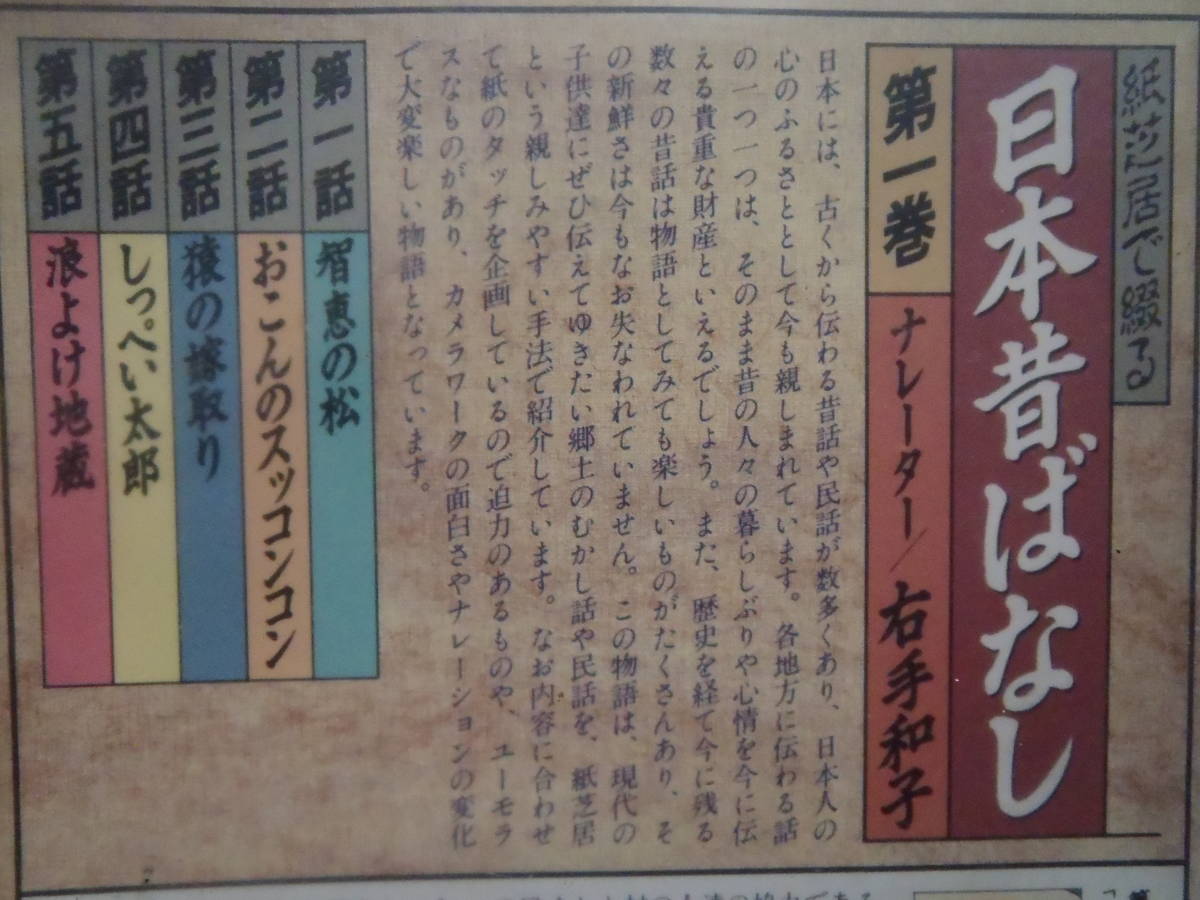 紙芝居で綴る
日本昔ばなし
第一巻
ナレーター/右手和子
日本には、古くから伝わる昔話や民話が数多くあり、日本人の
心のふるさととして今も親しまれています。各地方に伝わる話
の一つ一つは、そのまま昔の人々の暮らしぶりや心情を今に伝
える貴重な財産といえるでしょう。また、歴史を経て今に残る
数々の昔話は物語としてみても楽しいものがたくさんあり、そ
の新鮮さは今もなお失なわれていません。この物語は、現代の
子供達にぜひ伝えてゆきたい郷土のむかし話や民話を、紙芝居
という親しみやすい手法で紹介しています。なお内容に合わせ
て紙のタッチを企画しているので迫力のあるものや、ユーモラ
スなものがあり、カメラワークの面白さやナレーションの変化
で大変楽しい物語となっています。
第一話 智恵の松
第二話 おこんのスッコンコン
第三話 猿の嫁取り
第四話 しっぺい太郎
第五話 浪よけ地蔵